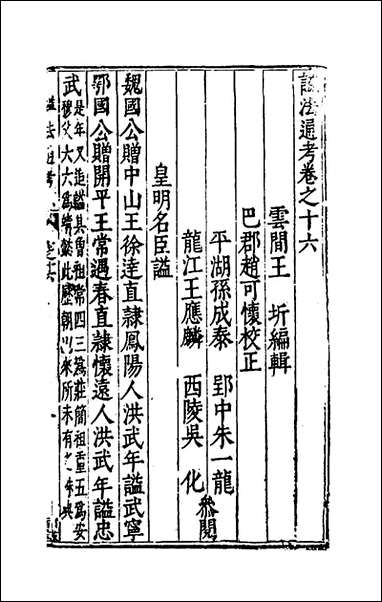 諡法通考卷之十六
雲間王　圻編輯
巴郡趙可懷校正
平湖孫成泰　郢中朱一龍
龍江王應麟　西陵吳　化　叅閱
皇明名臣諡
魏國公贈中山王徐達直隸鳳陽人洪武年諡武寧
鄂國公贈開平王常遇春直隸懷遠人洪武年諡忠
武是年又追諡其曾祖常四三為莊簡祖重五為安
穆父六六為靖懿此歷朝以來所未有之
諡法通考